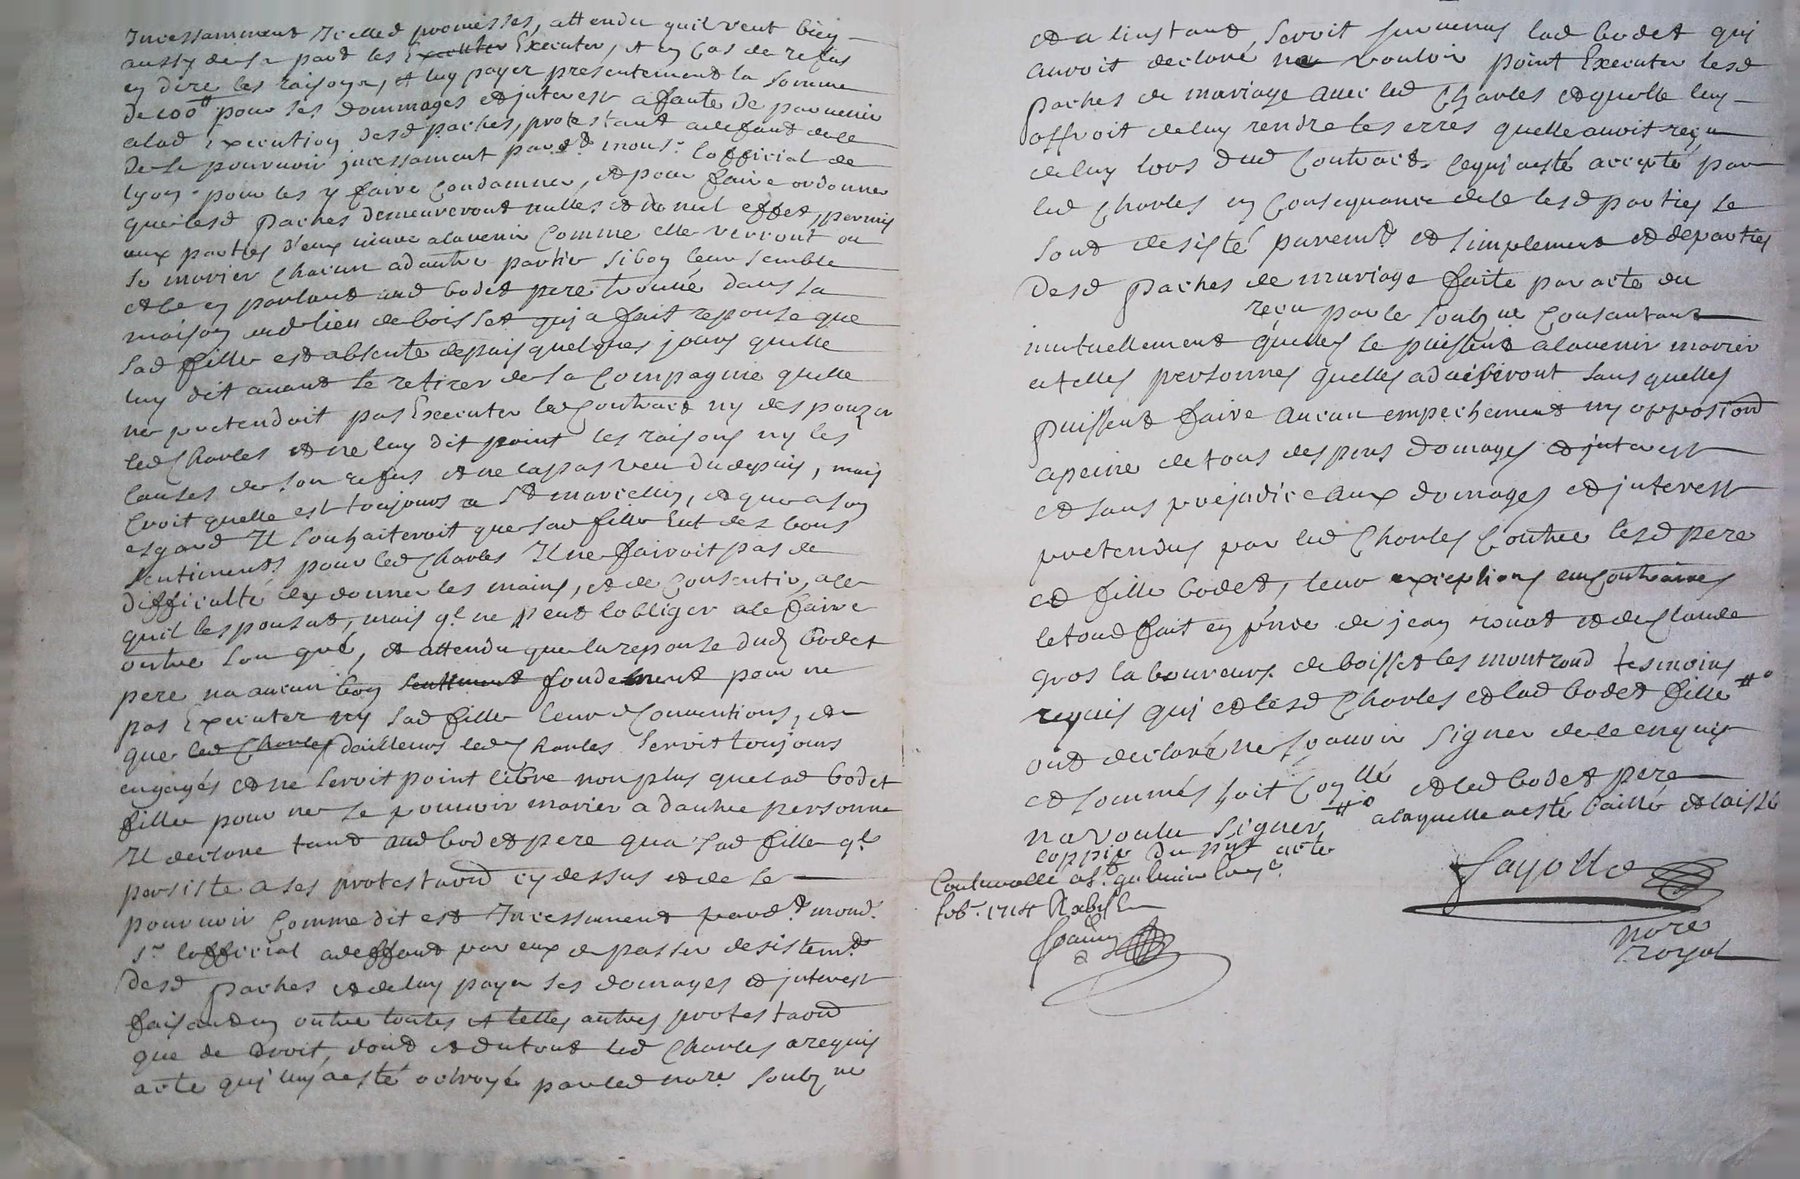 Incessamment Icelles promesses, attendu quil veut bien
aussy de sa part les Executer Executer, et en cas de refus
en dire les raisons, et luy payer presentement la somme
de 100ᵗᵗ pour ses dommages et interest a faute de parvenir
a lad Execution desd paches, protestant a deffaut de ce
de se pourvoir incessament pard.t mons.r lofficial de
lyon pour les y faire Condamner, et pour faire ordonner
que lesd paches demeureront nulles et de nul effet, permis
aux parties deux vivre a lavenir Comme elle verront ou
se marier Chacun a dautre partie si bon leur semble
et ce en parlant aud bodet pere trouvé dans sa
maison aud lieu de boisset qui a fait reponse que
sad fille est absente depuis quelques jours quelle
luy dit avant se retirer de sa Compagnie quelle
ne pretendoit pas Executer led Contract ny despouzer
led Charles et ne luy dit point les raisons ny les
causes de son refus et ne la pas veu du depuis, mais
Croit quelle est toujours a St marcellin, et que a son
esgard Il souhaiteroit que sad fille Eut des bons
sentiments pour led Charles Il ne fairoit pas de
difficulté dy donner les mains, et de Consentir, a ce
quil lespousat, mais q.l ne peut lobliger a le faire
outre son gré, et attendu que la reponse dud bodet
pere na aucun bon sentiment fondement pour ne
pas Executer ny sad fille leurs Conventions, et
que led Charles dailleurs led Charles seroit toujours
engagés et ne seroit point libre non plus que lad bodet
fille pour ne se pouvoir marier a dautre personne
Il declare tant aud bodet pere qua sad fille q.l
persiste a ses protestaōn cy dessus et de se
pourvoir Comme dit est Incessament pard.t mond.
s.r lofficial a deffaut par eux de passer desistem.t
desd paches et de luy payer ses domages et interest
faisant en outre toutes et telles autres protestaōn
que de droit, dont et du tout led Charles a requis
acte qui luy a esté octroyé par led nore. soubz ne
et a linstant seroit survenus lad bodet qui
auroit declaré ne vouloir point Executer lesd
paches de mariage avec led Charles et quelle luy
offroit de luy rendre les erres quelle avoit reçu
de luy lors dud Contract. ce qui a esté accepté par
led Charles en Consequance de ce lesd parties se
sont desisté purem.t et simplement et departies
desd paches de mariage faite par acte du
reçu par le soubz.né Consantant
mutuellement quelles se puissent a lavenir marier
a telles personnes quelles adviseront sans quelles
puissent faire aucun empechement ny oppositiōn
a peine de tous despens domages et interest
et sans prejudice aux domages et interest
pretendus par led Charles Contre lesd pere
et fille bodet, leur exceptions au Contraires
le tout fait en p.nce de jean rouat et de Claude
gros laboureurs de boisset les montrond tesmoins
requis qui et lesd Charles et lad bodet fille #°
ont declaré ne sçavoir signer de ce enquis
et sommés soit Con.llé et led bodet pere
na voulu signer #° a laquelle a esté baillé et laissé
coppie du pnt acte
Fayolle
Feb.r 1714
nore
royal